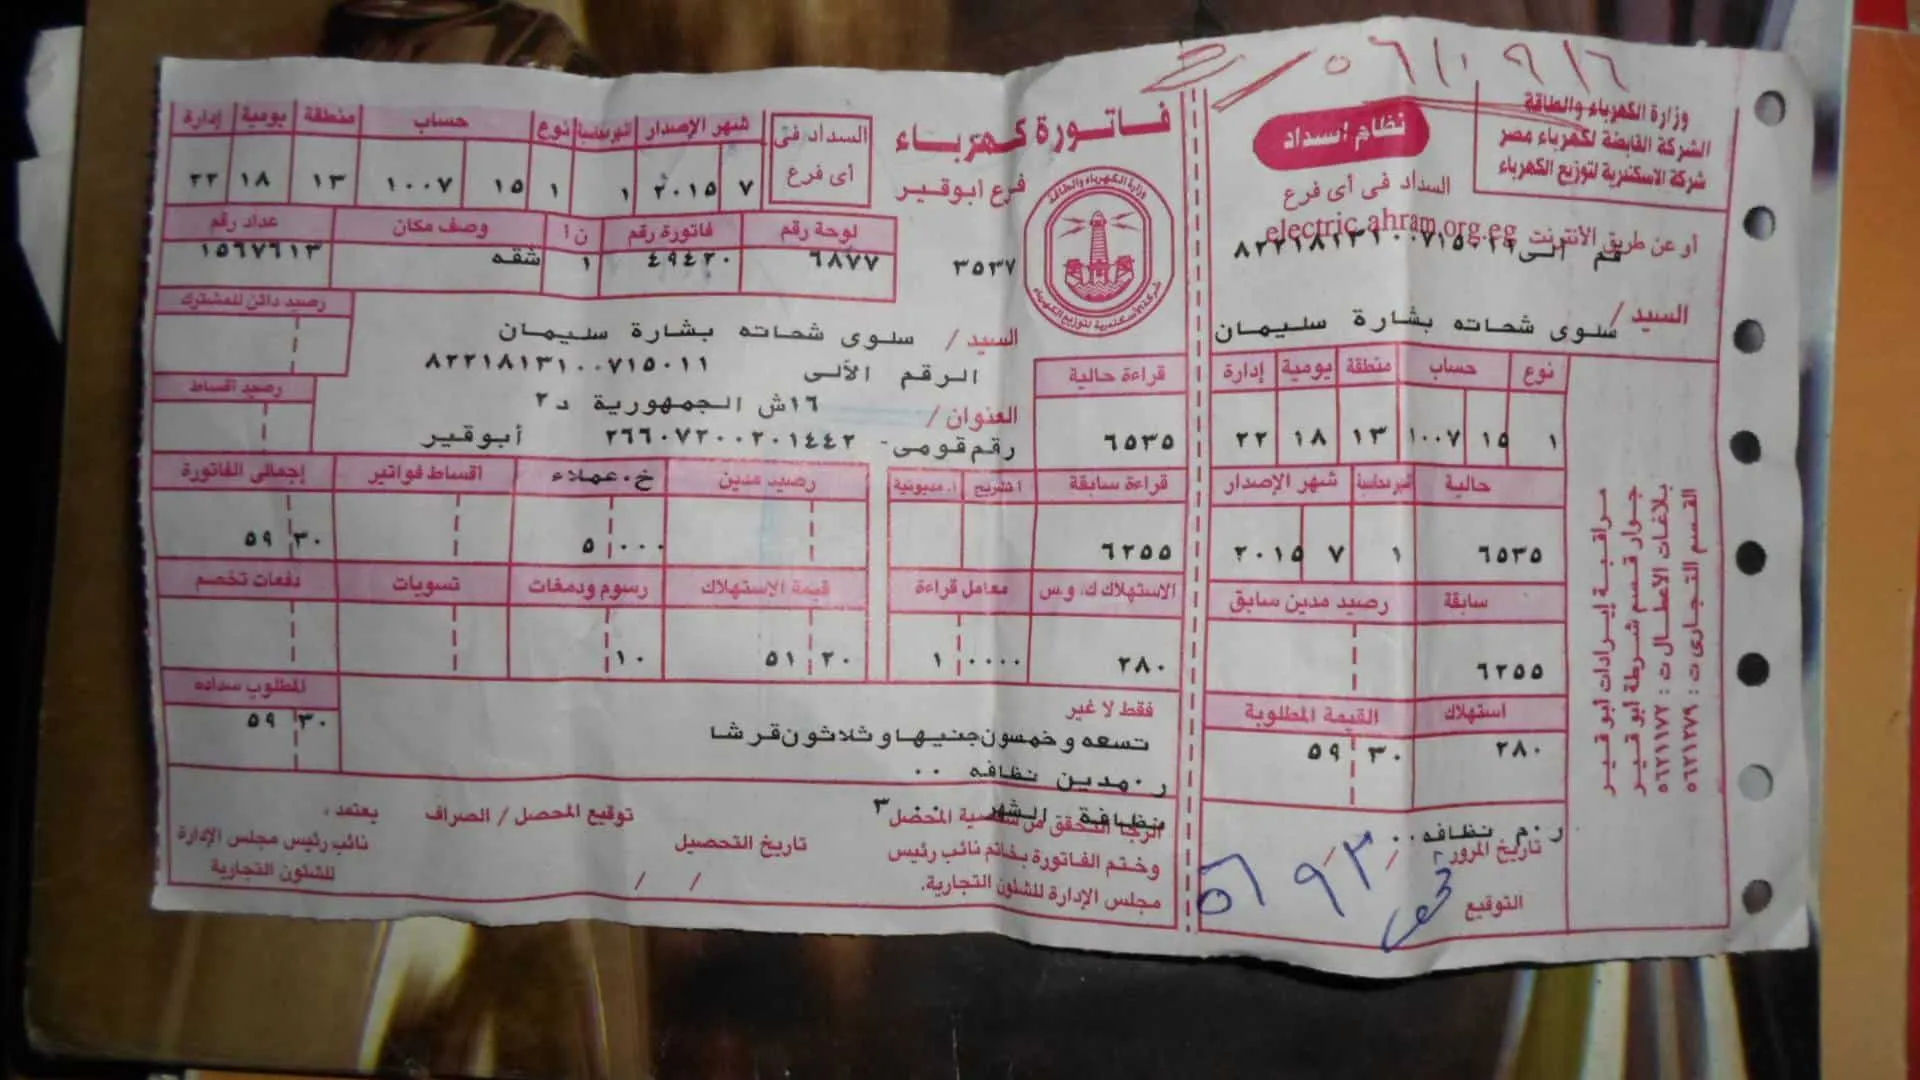 وزارة الكهرباء والطاقة
الشركة القابضة لكهرباء مصر
شركة الاسكندرية لتوزيع الكهرباء
نظام اسداد
السداد فى أى فرع
أو عن طريق الأنترنت electric.ahram.org.eg
٨٢٢١٨١٣١٠٠٧١٥٠١١
السيد / سلوى شحاته بشارة سليمان
نوع حساب منطقة يومية إدارة
١ ١٥ ١٠٠٧ ١٣ ١٨ ٢٢
حالية شهر الإصدار
٦٥٣٥ ١ ٧ ٢٠١٥
سابقة رصيد مدين سابق
٦٢٥٥
استهلاك القيمة المطلوبة
٢٨٠ ٣٠ ٥٩
ر.م نظافه ٠٠
تاريخ المرور
التوقيع
مراقبة إيرادات أبو قير
جوار قسم شرطة أبو قير
بلاغات الأعطال ت : ٥٦٢١١٧٢
القسم التجارى ت : ٥٦٢١٢٧٩
فاتورة كهرباء
فرع ابوقير
٣٥٣٧
السداد فى
أى فرع
شهر الإصدار نوع حساب منطقة يومية إدارة
٧ ٢٠١٥ ١ ١ ١٥ ١٠٠٧ ١٣ ١٨ ٢٢
لوحة رقم فاتورة رقم ن أ وصف مكان عداد رقم
٦٨٧٧ ٤٩٤٢٠ ١ شقه ١٥٦٧٦١٣
رصيد دائن للمشترك
السيد / سلوى شحاته بشارة سليمان
الرقم الألى ٨٢٢١٨١٣١٠٠٧١٥٠١١
رصيد اقساط
العنوان / ١٦ش الجمهورية د٢
رقم قومى- ٢٦٦٠٧٢٠٠٢٠١٤٤٢ أبوقير
قراءة حالية
٦٥٣٥
قراءة سابقة ا.مديونية رصيد مدين خ.عملاء اقساط فواتير إجمالى الفاتورة
٦٢٥٥ ٠٠٠ ٥ ٣٠ ٥٩
الاستهلاك ك.و.س معامل قراءة قيمة الإستهلاك رسوم ودمغات تسويات دفعات تخصم
٢٨٠ ٠٠٠٠ ١ ٢٠ ٥١ ١٠
المطلوب سداده
٣٠ ٥٩
فقط لا غير
تسعه وخمسون جنيها و ثلاثون قرشا
ر.مدين نظافه ٠٠
نظافة الشهر ٣
الرجا التحقق من شخصية المحصل
وختم الفاتورة بخاتم نائب رئيس
مجلس الإدارة للشئون التجارية.
تاريخ التحصيل
/ /
توقيع المحصل / الصراف
يعتمد ،
نائب رئيس مجلس الإدارة
للشئون التجارية